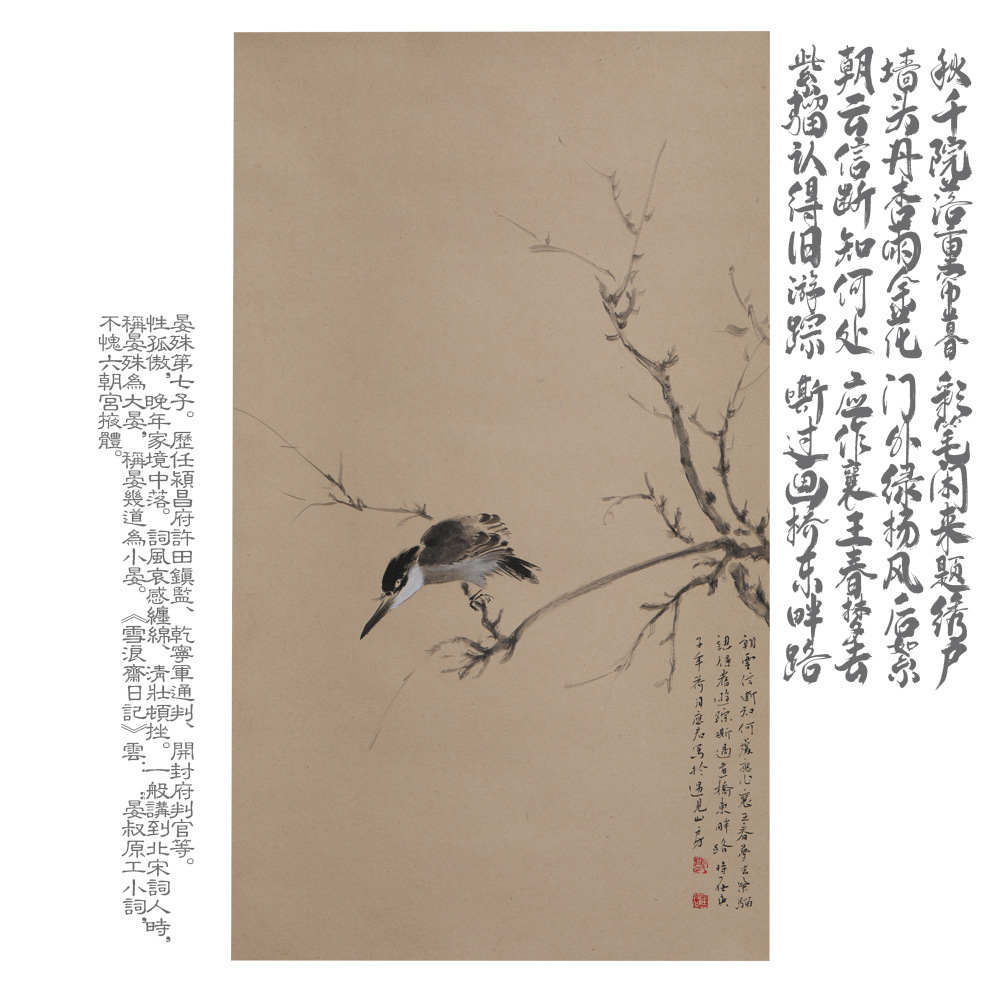 秋千院落重帘暮 彩笔闲来题绣户
墙头丹杏雨余花 门外绿杨风后絮
朝云信断知何处 应作襄王春梦去
紫骝认得旧游踪 嘶过画桥东畔路
朝雲信斷知何處應作襄王春夢去紫騮
認得舊遊踪嘶過畫橋東畔路 時在庚
子年荷月應君寫於遇見山房
晏殊第七子。歷任潁昌府許田鎮監、乾寧軍通判、開封府判官等。
性孤傲,晚年家境中落。詞風哀感纏綿、清壯頓挫。一般講到北宋詞人時,
稱晏殊為大晏,稱晏幾道為小晏。《雪浪齋日記》雲:“晏叔原工小詞,
不愧六朝宮掖體。